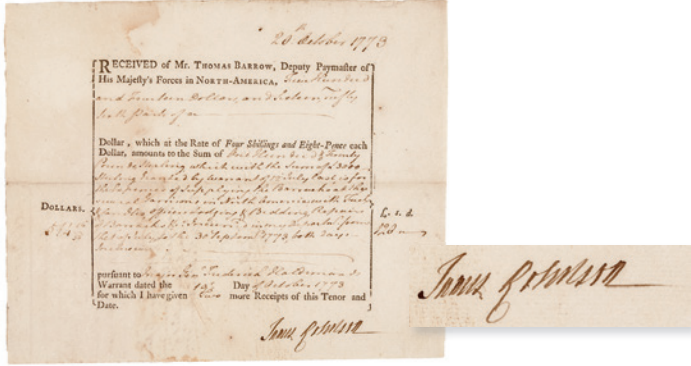 20th October 1773
RECEIVED of Mr. THOMAS BARROW, Deputy Paymaster of
His Majesty's Forces in NORTH-AMERICA, Five Hundred
and Fourteen Dollars and
Dollar, which at the Rate of Four Shillings and Eight-Pence each
Dollar, amounts to the Sum of One Hundred & Twenty
Pounds Sterling which with the Sum of £3000
Sterling by Warrant of is for
the Expences of Supplying the Barracks at the
several Garrisons in North America with
Officers Lodging & Bedding Repairs
DOLLARS.
of Barracks from
£. s. d.
514
120
the to the 30 September 1773, both days
Inclusive
pursuant to Major Genl Frederick Haldimand's
Warrant dated the Day of October 1773
for which I have given two more Receipts of this Tenor and
Date.
James Robertson
James Robertson